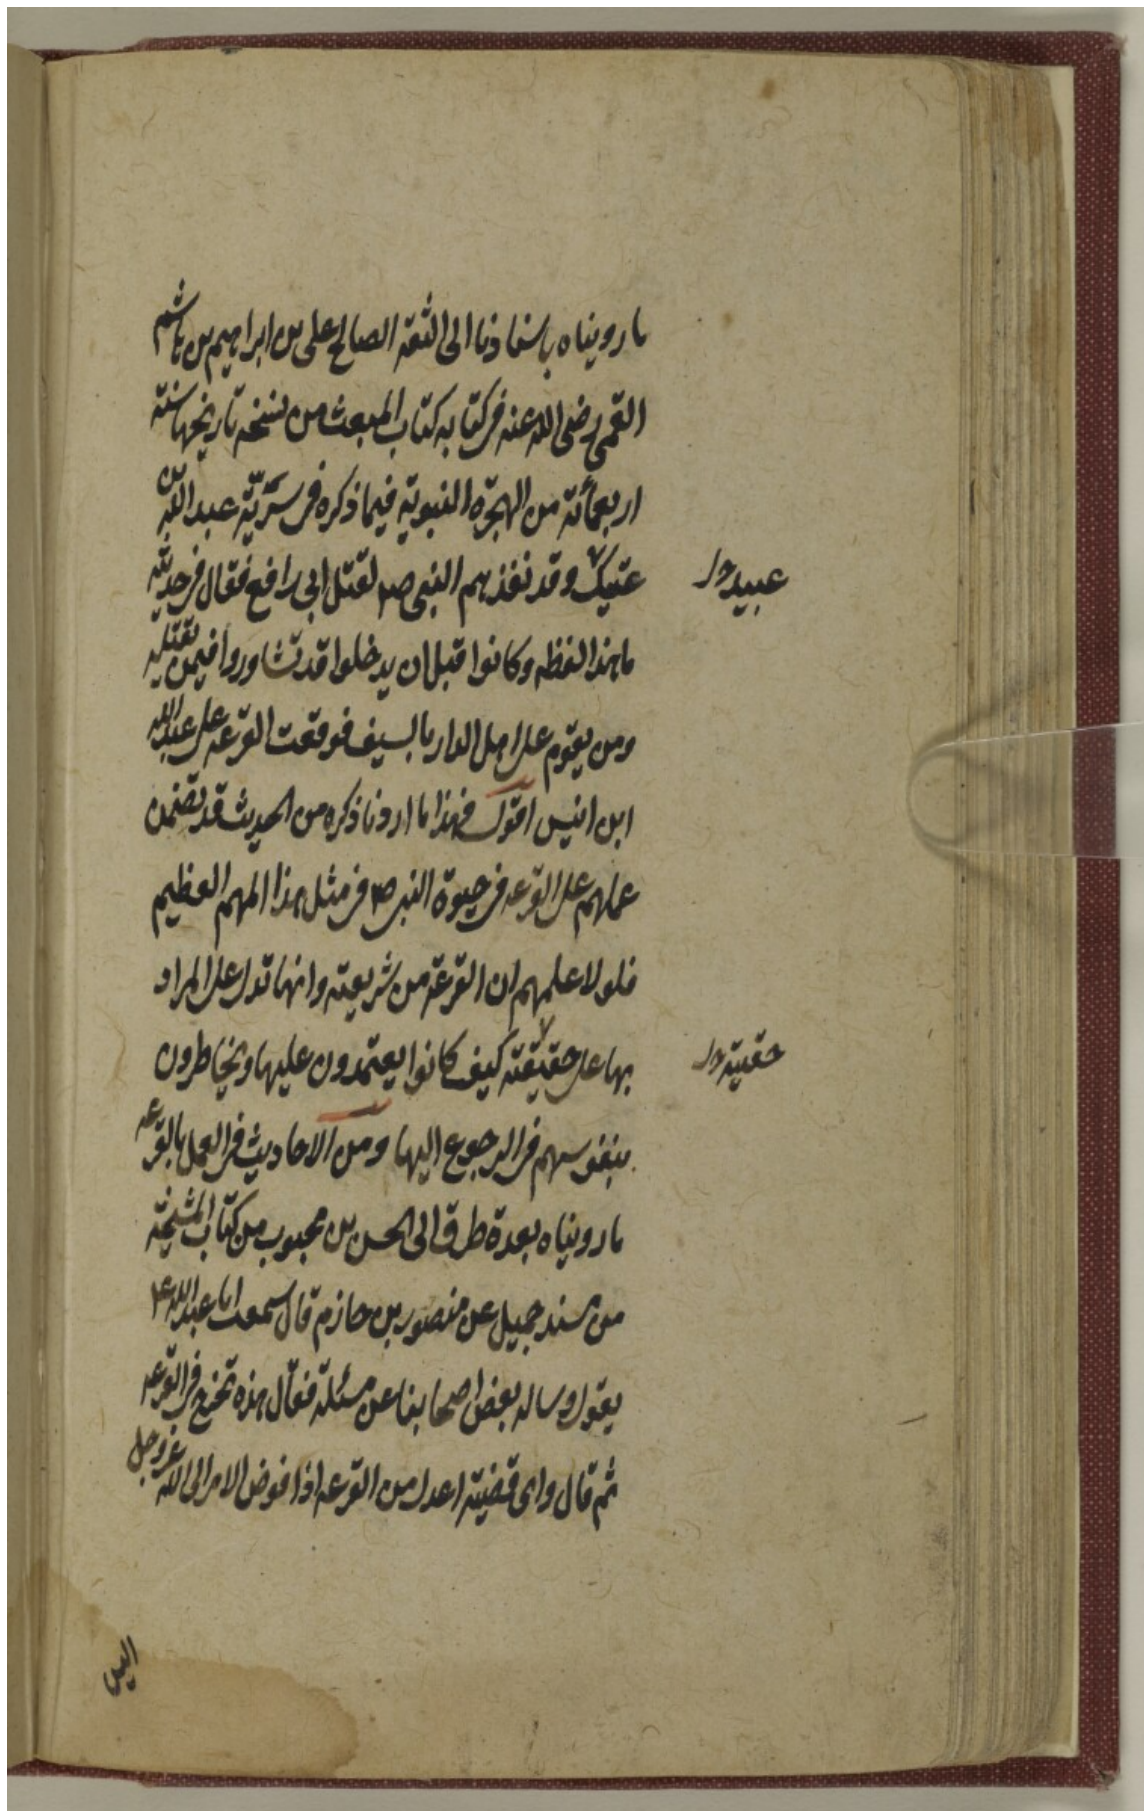 ما رويناه باسنادنا الى الثقة الصالح على بن ابراهيم بن هاشم
القمى رضى الله عنه فى كتابه كتاب المبعث من نسخة تاريخها سنة
اربعمأئة من الهجرة النبوية فيما ذكره فى سريّة عبد الله بن
عتيك وقد نفذهم النبى ص لقتل ابى رافع فقال فى حديثه
عبيد
ما هذا لفظه وكانوا قبل ان يدخلوا قد تشاوروا فيمن يقتله
ومن يقوم على اهل الدار بالسيف فوقعت القرعة على عبد الله
ابن انيس اقول فهذا ما اردنا ذكره من الحديث قد تضمن
عملهم على القرعه فى حيوة النبى ص فى مثل هذا المهم العظيم
فلولا علمهم ان القرعة من شريعته وانها تدل على المراد
بها على حقيقته كيف كانوا يعتمدون عليها ويخاطرون
حقيته
بنفوسهم فى الرجوع اليها ومن الاحاديث فى العمل بالقرعه
ما رويناه بعدة طرق الى الحسن بن محبوب من كتاب المشيخة
من مسند جميل عن منصور بن حازم قال سمعت ابا عبد الله ع
يقول وساله بعض اصحابنا عن مسئلة فقال هذه تخرج فى القرعه
ثم قال واى قضية اعدل من القرعه اذا فوض الامر الى الله عز وجل
اليس